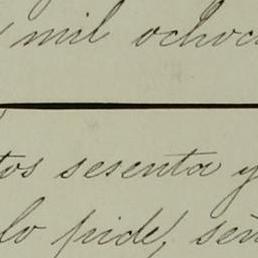 mil ochoc
tos sesenta y
lo pide, señ